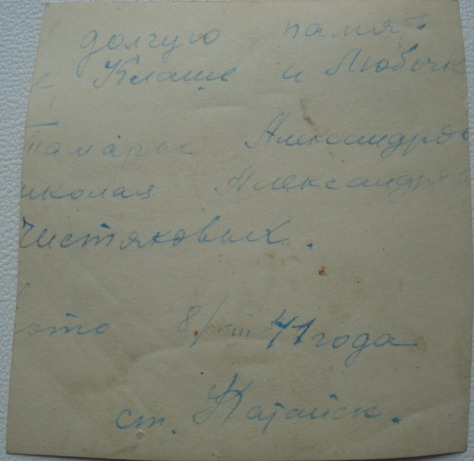 долгую память
Клаше и Любочке
Тамары Александров
иколая Александров
Чистяковых.
фото 8/VIII 41 года
ст. Катайск.